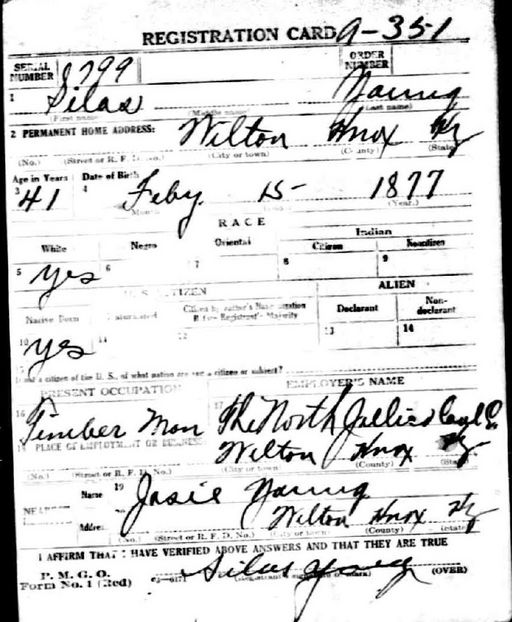 REGISTRATION CARD A-351
SERIAL NUMBER 1799 ORDER NUMBER
1 Silas Young
(First name) (Middle name) (Last name)
2 PERMANENT HOME ADDRESS: Wilton Knox Ky
(No.) (Street or R. F. D. No.) (City or town) (County) (State)
Age in Years Date of Birth
3 41 4 Feby. 15- 1877
(Month) (Day) (Year)
RACE
White Negro Oriental Indian
Citizen Noncitizen
5 yes 6 7 8 9
U. S. CITIZEN ALIEN
Native Born Naturalized Citizen by Father's Naturalization Before Registrant's Majority Declarant Non-declarant
10 yes 11 12 13 14
15 If not a citizen of the U. S., of what nation are you a citizen or subject?
PRESENT OCCUPATION EMPLOYER'S NAME
16 Timber Man 17 The North Jellico Coal Co
18 PLACE OF EMPLOYMENT OR BUSINESS Wilton Knox Ky
(No.) (Street or R. F. D. No.) (City or town) (County) (State)
Name 19 Josie Young
NEAREST
Address Wilton Knox Ky
(No.) (Street or R. F. D. No.) (City or town) (County) (State)
I AFFIRM THAT I HAVE VERIFIED ABOVE ANSWERS AND THAT THEY ARE TRUE
P. M. G. O.
Form No. 1 (Red) Silas Young
(Registrant's signature or mark) (OVER)